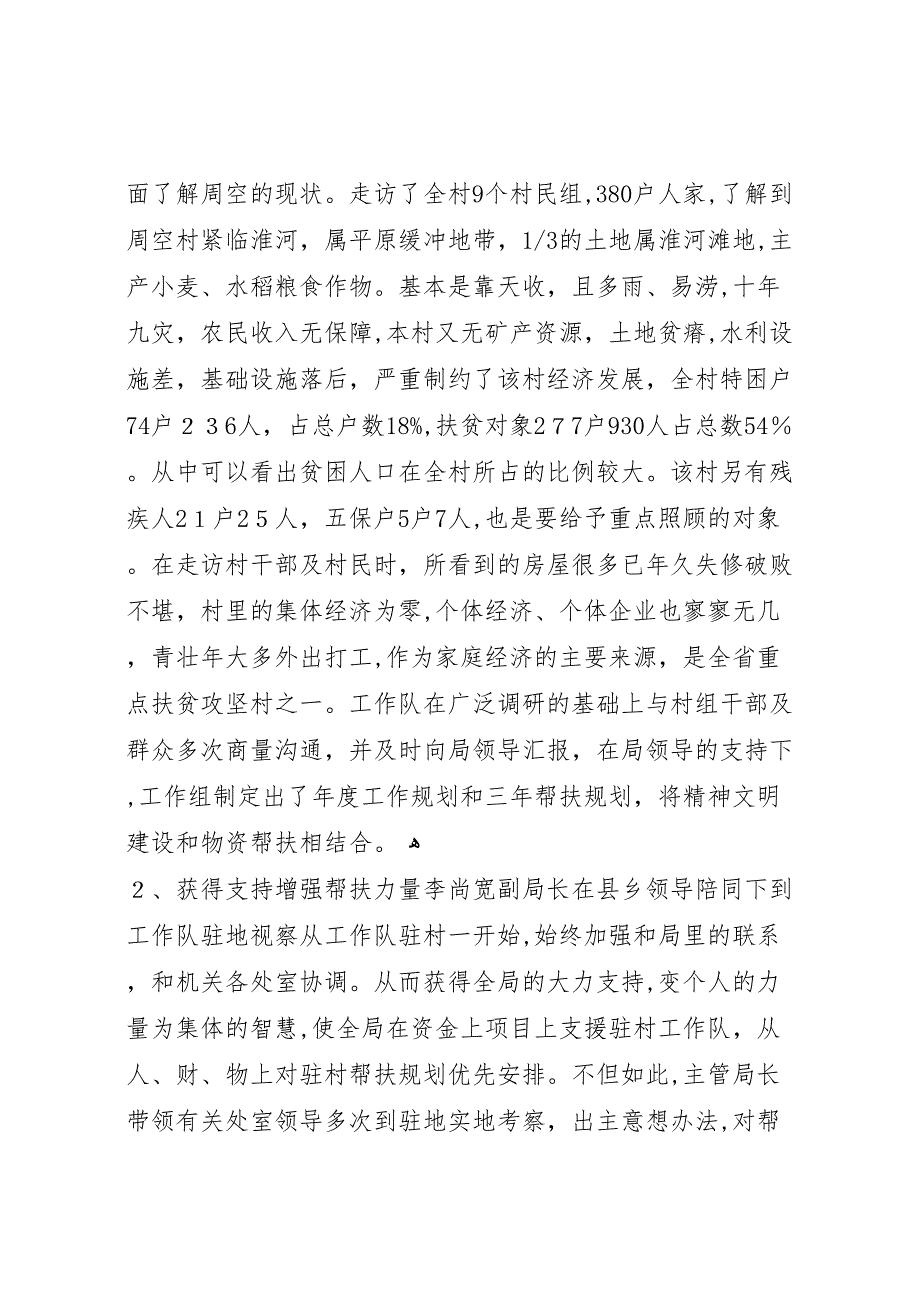 面了解周空的现状。走访了全村9个村民组,380户人家,了解到
周空村紧临淮河，属平原缓冲地带，1/3的土地属淮河滩地,主
产小麦、水稻粮食作物。基本是靠天收，且多雨、易涝,十年
九灾，农民收入无保障,本村又无矿产资源，土地贫瘠,水利设
施差，基础设施落后，严重制约了该村经济发展，全村特困户
74户２３6人，占总户数18%,扶贫对象2７7户930人占总数54％
。从中可以看出贫困人口在全村所占的比例较大。该村另有残
疾人2１户2５人，五保户5户7人,也是要给予重点照顾的对象
。在走访村干部及村民时，所看到的房屋很多已年久失修破败
不堪，村里的集体经济为零,个体经济、个体企业也寥寥无几
，青壮年大多外出打工,作为家庭经济的主要来源，是全省重
点扶贫攻坚村之一。工作队在广泛调研的基础上与村组干部及
群众多次商量沟通，并及时向局领导汇报，在局领导的支持下
,工作组制定出了年度工作规划和三年帮扶规划，将精神文明
建设和物资帮扶相结合。 ﻫ
２、获得支持增强帮扶力量李尚宽副局长在县乡领导陪同下到
工作队驻地视察从工作队驻村一开始,始终加强和局里的联系
，和机关各处室协调。从而获得全局的大力支持,变个人的力
量为集体的智慧,使全局在资金上项目上支援驻村工作队，从
人、财、物上对驻村帮扶规划优先安排。不但如此,主管局长
带领有关处室领导多次到驻地实地考察，出主意想办法,对帮